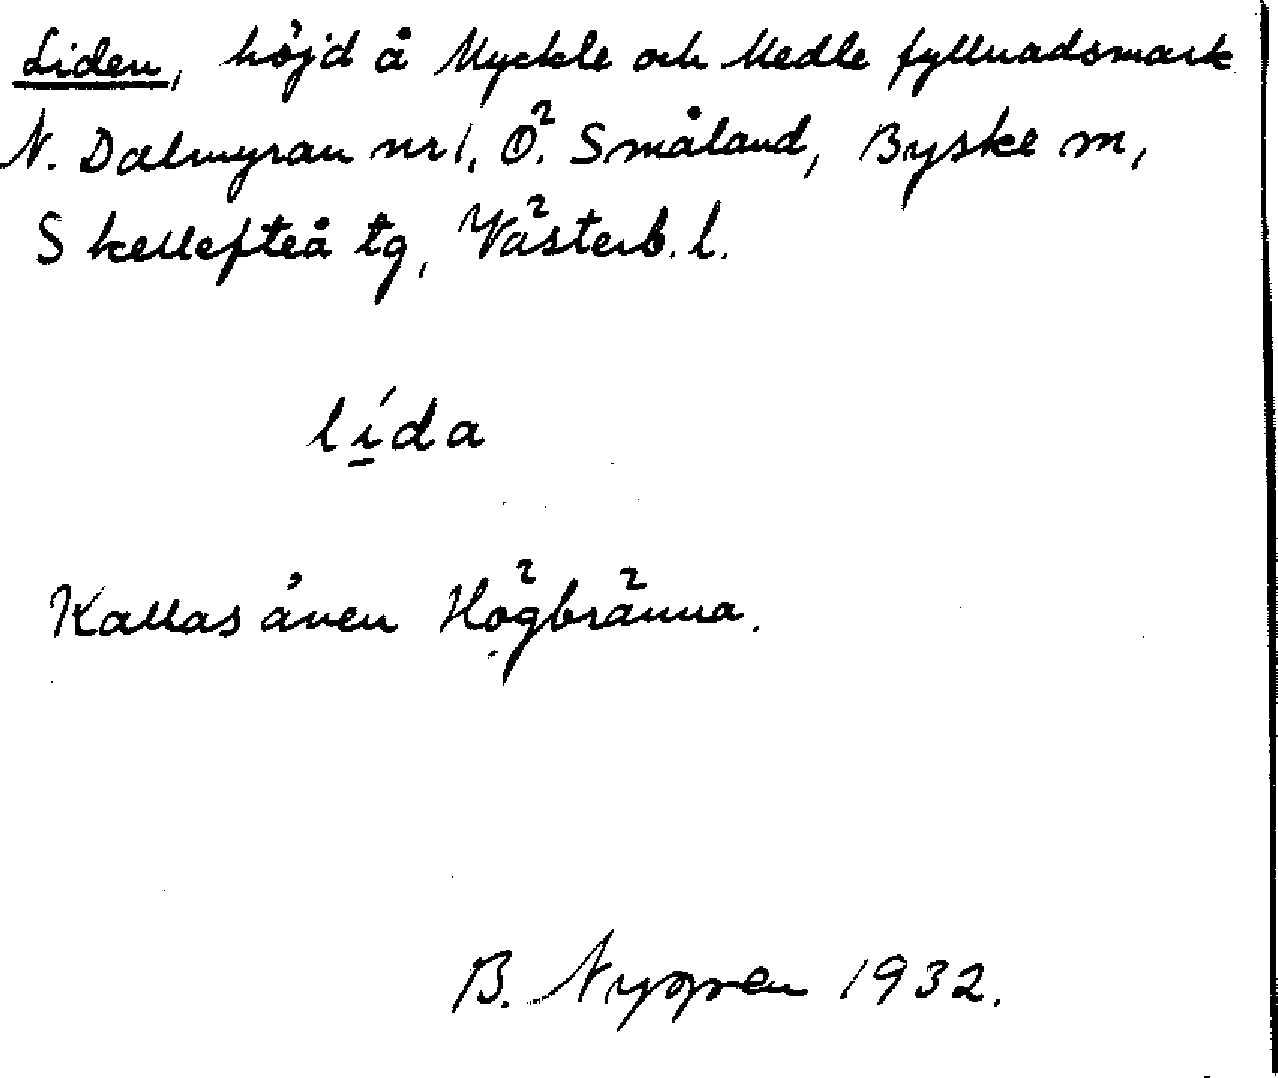 Liden, höjd å Myckle och Medle fyllnadsmark
N. Dalmyran nr 1, Ö. Småland, Byske m,
Skellefteå tg, Västerb. l.
lí̱da
Kallas även Högbränna.
B. Nygren 1932.